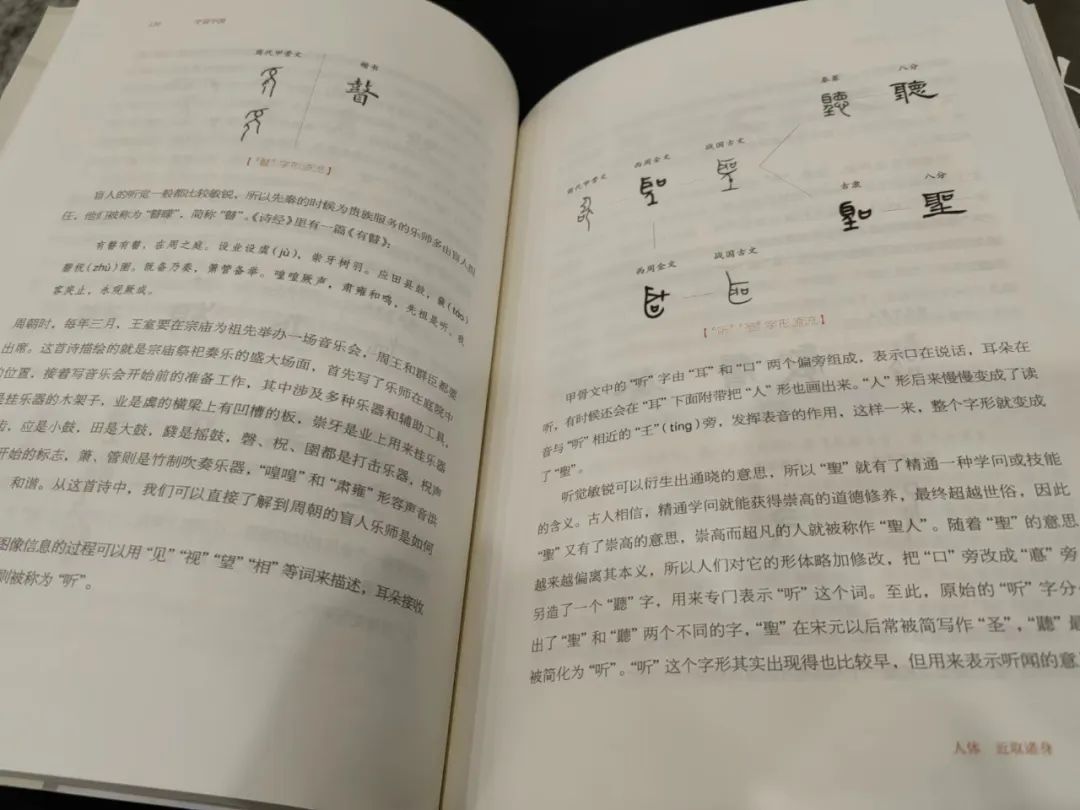 商代甲骨文
楷书
瞽
[“瞽”字形流变]
盲人的听觉一般都比较敏锐，所以先秦的时候为贵族服务的乐师多由盲人担
任，他们被称为“瞽矇”，简称“瞽”。《诗经》里有一篇《有瞽》：
有瞽有瞽，在周之庭。设业设虡(jù)，崇牙树羽。应田县鼓，鼗(táo)
磬柷(zhù)圉。既备乃奏，箫管备举。喤喤厥声，肃雍和鸣，先祖是听。我
客戾止，永观厥成。
周朝时，每年三月，王室要在宗庙为祖先举办一场音乐会，周王和群臣都要
出席。这首诗描绘的就是宗庙祭祀奏乐的盛大场面，首先写了乐师在庭院中
的位置，接着写音乐会开始前的准备工作，其中涉及多种乐器和辅助工具，
是挂乐器的木架子，业是虡的横梁上有凹槽的板，崇牙是业上用来挂乐器
应是小鼓，田是大鼓，鼗是摇鼓，磬、柷、圉都是打击乐器，柷声
开始的标志，箫、管则是竹制吹奏乐器，“喤喤”和“肃雍”形容声音洪
和谐。从这首诗中，我们可以直接了解到周朝的盲人乐师是如何
图像信息的过程可以用“见”“视”“望”“相”等词来描述，耳朵接收
则被称为“听”。
商代甲骨文
西周金文
战国古文
秦篆
八分
聽
古隶
八分
聖
西周金文
战国古文
[“听”“圣”字形流变]
甲骨文中的“听”字由“耳”和“口”两个偏旁组成，表示口在说话，耳朵在
听，有时候还会在“耳”下面附带把“人”形也画出来。“人”形后来慢慢变成了读
音与“听”相近的“𡈼”(tǐng)旁，发挥表音的作用，这样一来，整个字形就变成
了“聖”。
听觉敏锐可以衍生出通晓的意思，所以“聖”就有了精通一种学问或技能
的含义。古人相信，精通学问就能获得崇高的道德修养，最终超越世俗，因此
“聖”又有了崇高的意思，崇高而超凡的人就被称作“聖人”。随着“聖”的意思
越来越偏离其本义，所以人们对它的形体略加修改，把“口”旁改成“悳”旁
另造了一个“聽”字，用来专门表示“听”这个词。至此，原始的“听”字分
出了“聖”和“聽”两个不同的字，“聖”在宋元以后常被简写作“圣”，“聽”最
被简化为“听”。“听”这个字形其实出现得也比较早，但用来表示听闻的意
人体 近取诸身